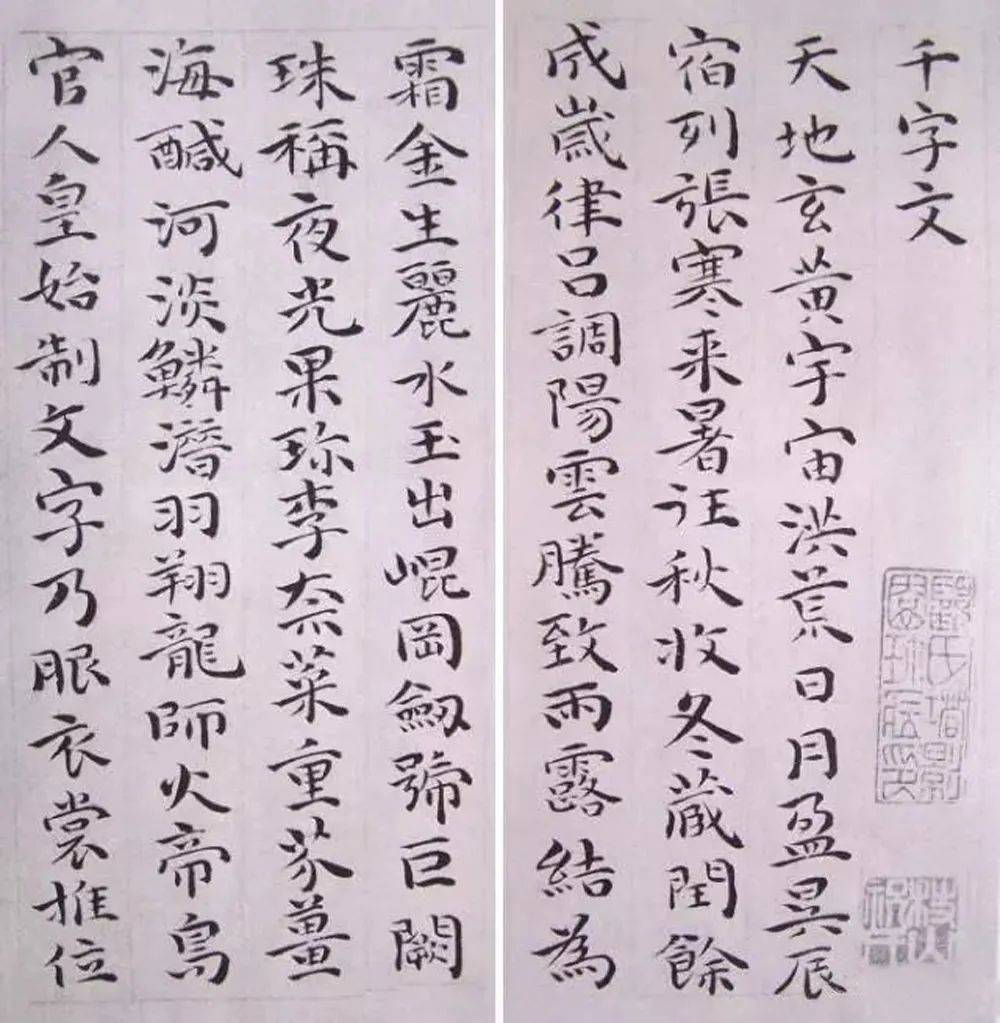 千字文
天地玄黄宇宙洪荒日月盈昃辰
宿列張寒来暑往秋收冬蔵閏餘
成歲律呂調陽雲騰致雨露結為
霜金生麗水玉出崐岡劔號巨闕
珠稱夜光果珎李柰菜重芥薑
海醎河淡鱗潛羽翔龍師火帝鳥
官人皇始制文字乃服衣裳推位